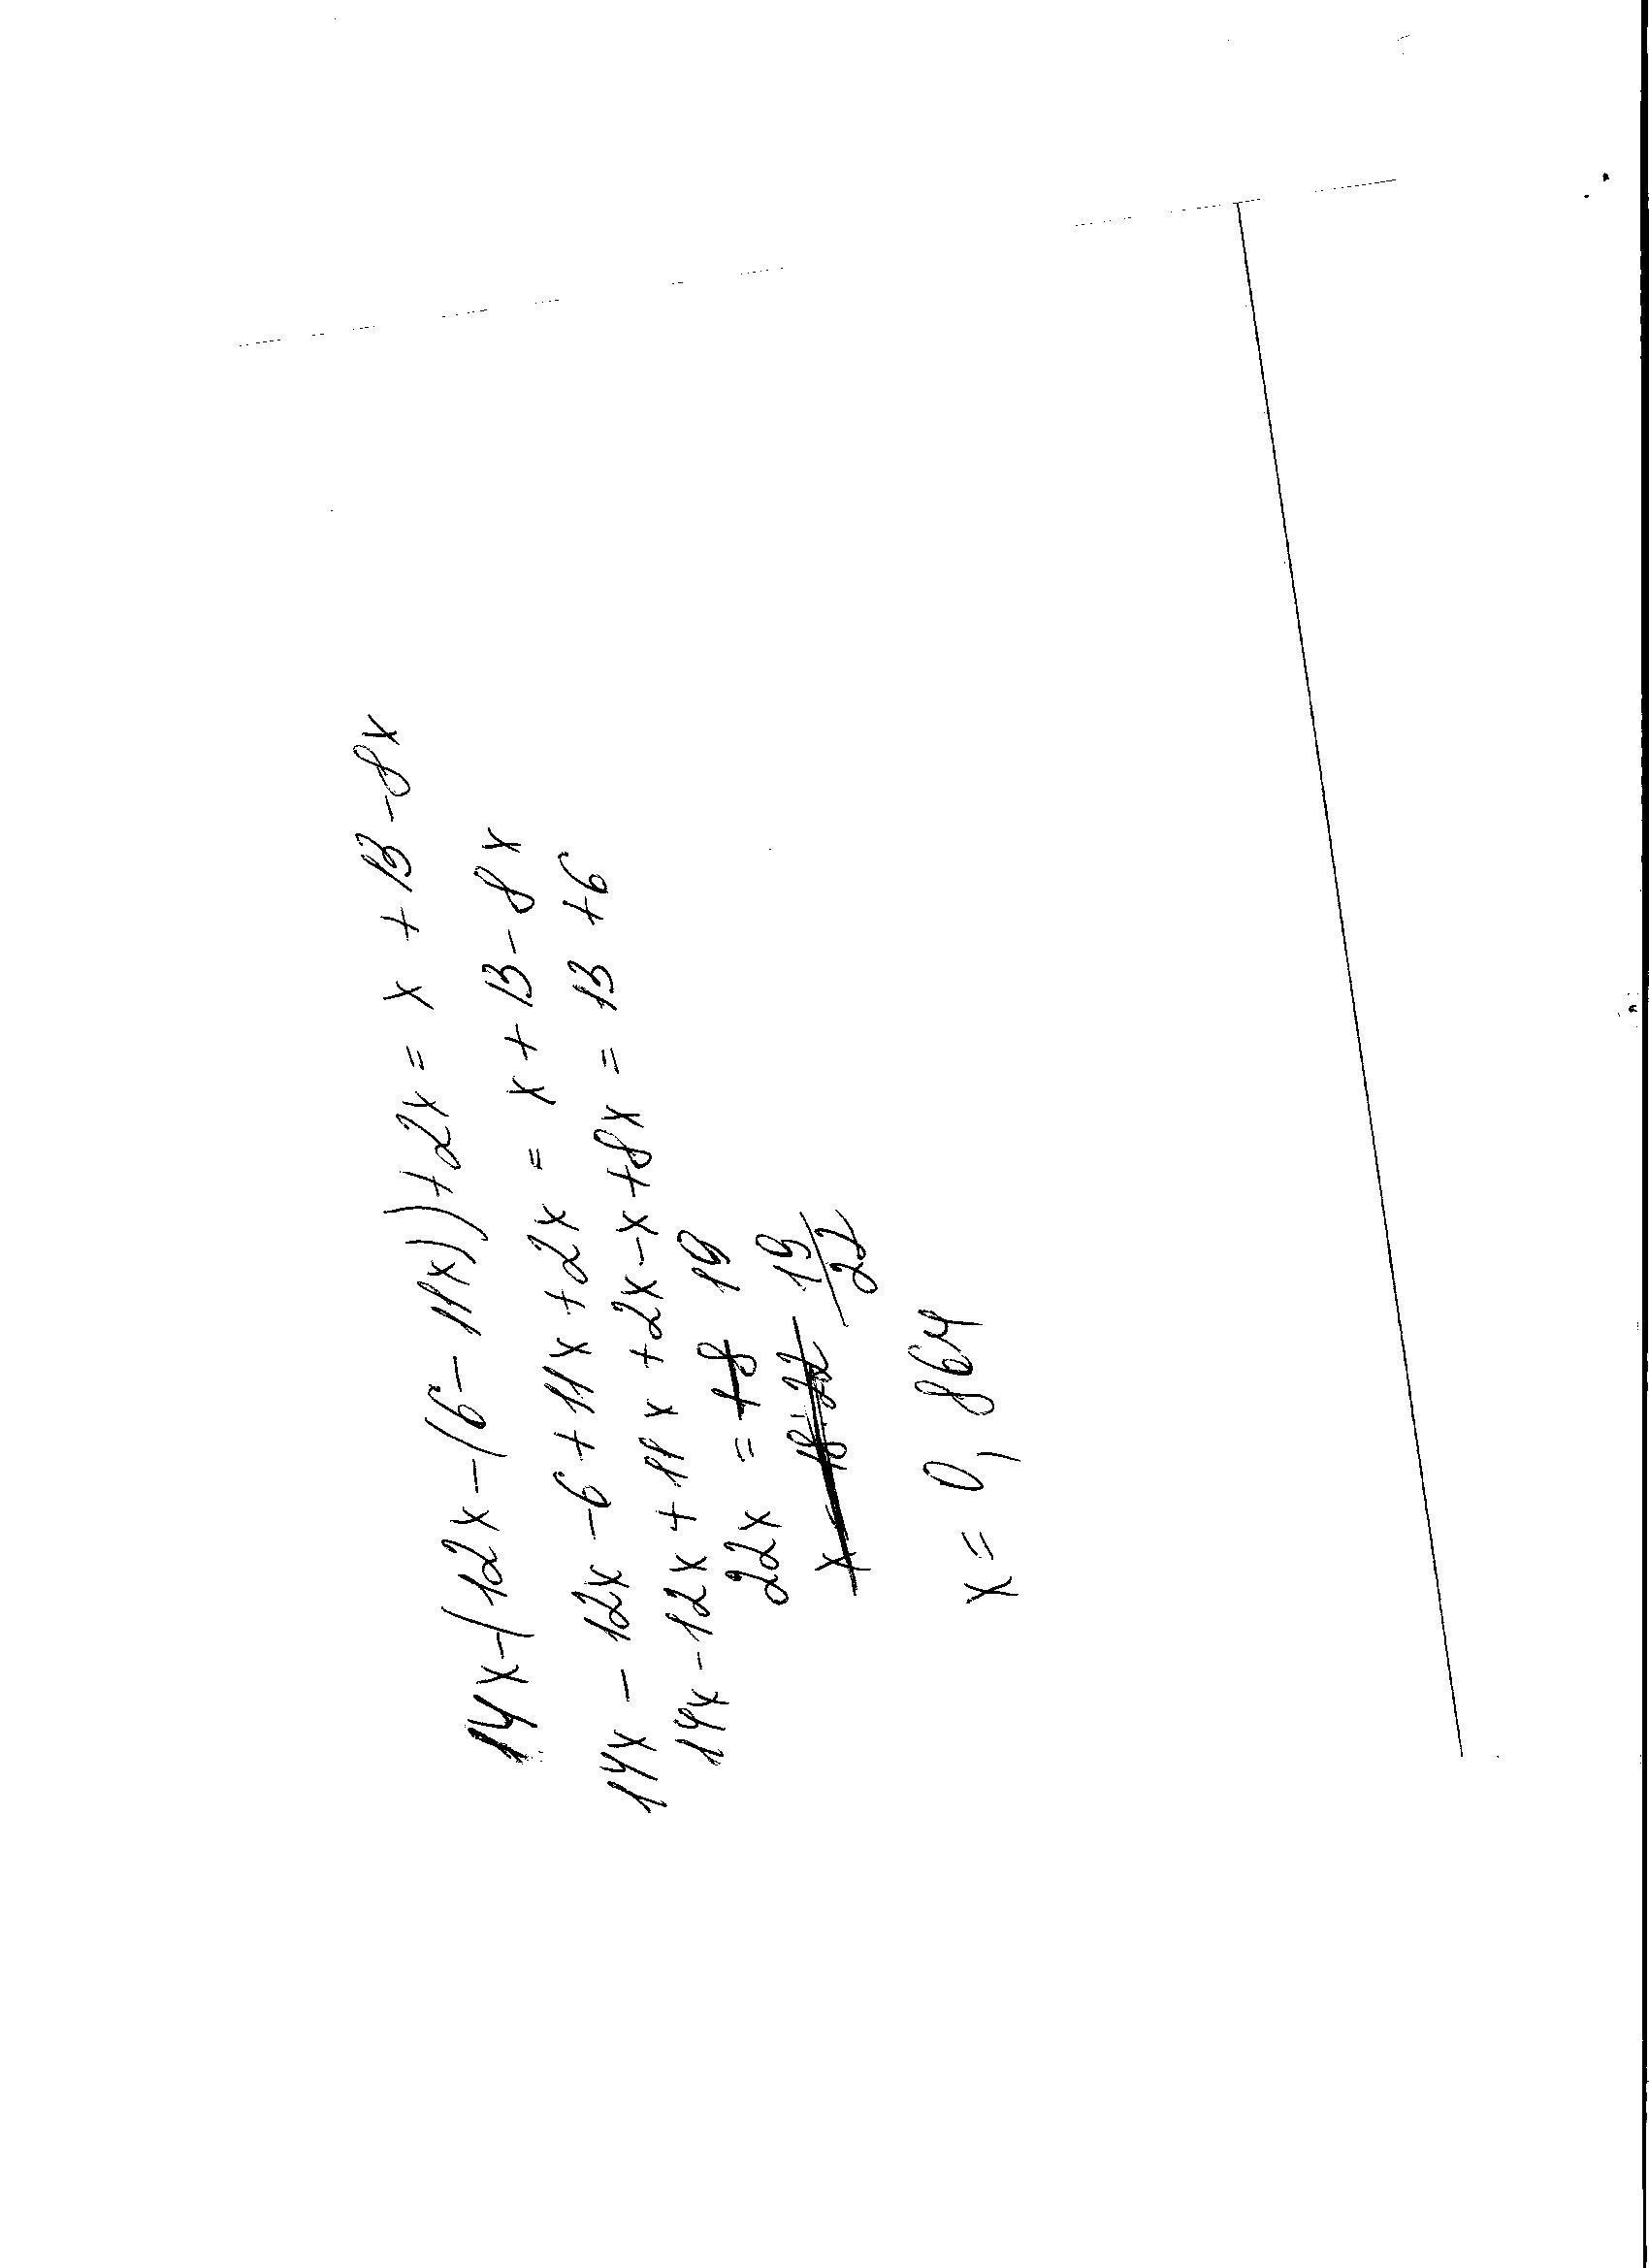 14x-(12x-(6-11x))+2x = x + 13 -8x
14x - 12x -6 + 11x + 2x = x + 13 - 8x
14x -12x + 11x +2x -x +8x = 13 +6
22x = 18 19
x = 18:22 19/22
x = 0,864